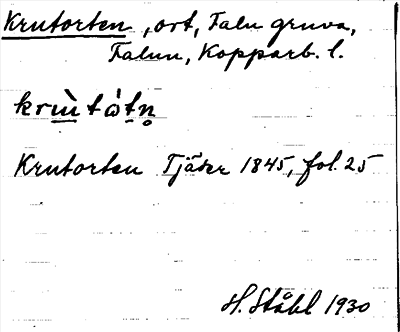 Krutorten, ort, Falu gruva,
Falun, Kopparb. l.
krùtὼtn̥
Krutorten Tjäder 1845, fol. 25
H. Ståhl 1930